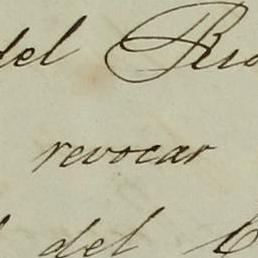 del Rio
revocar
del